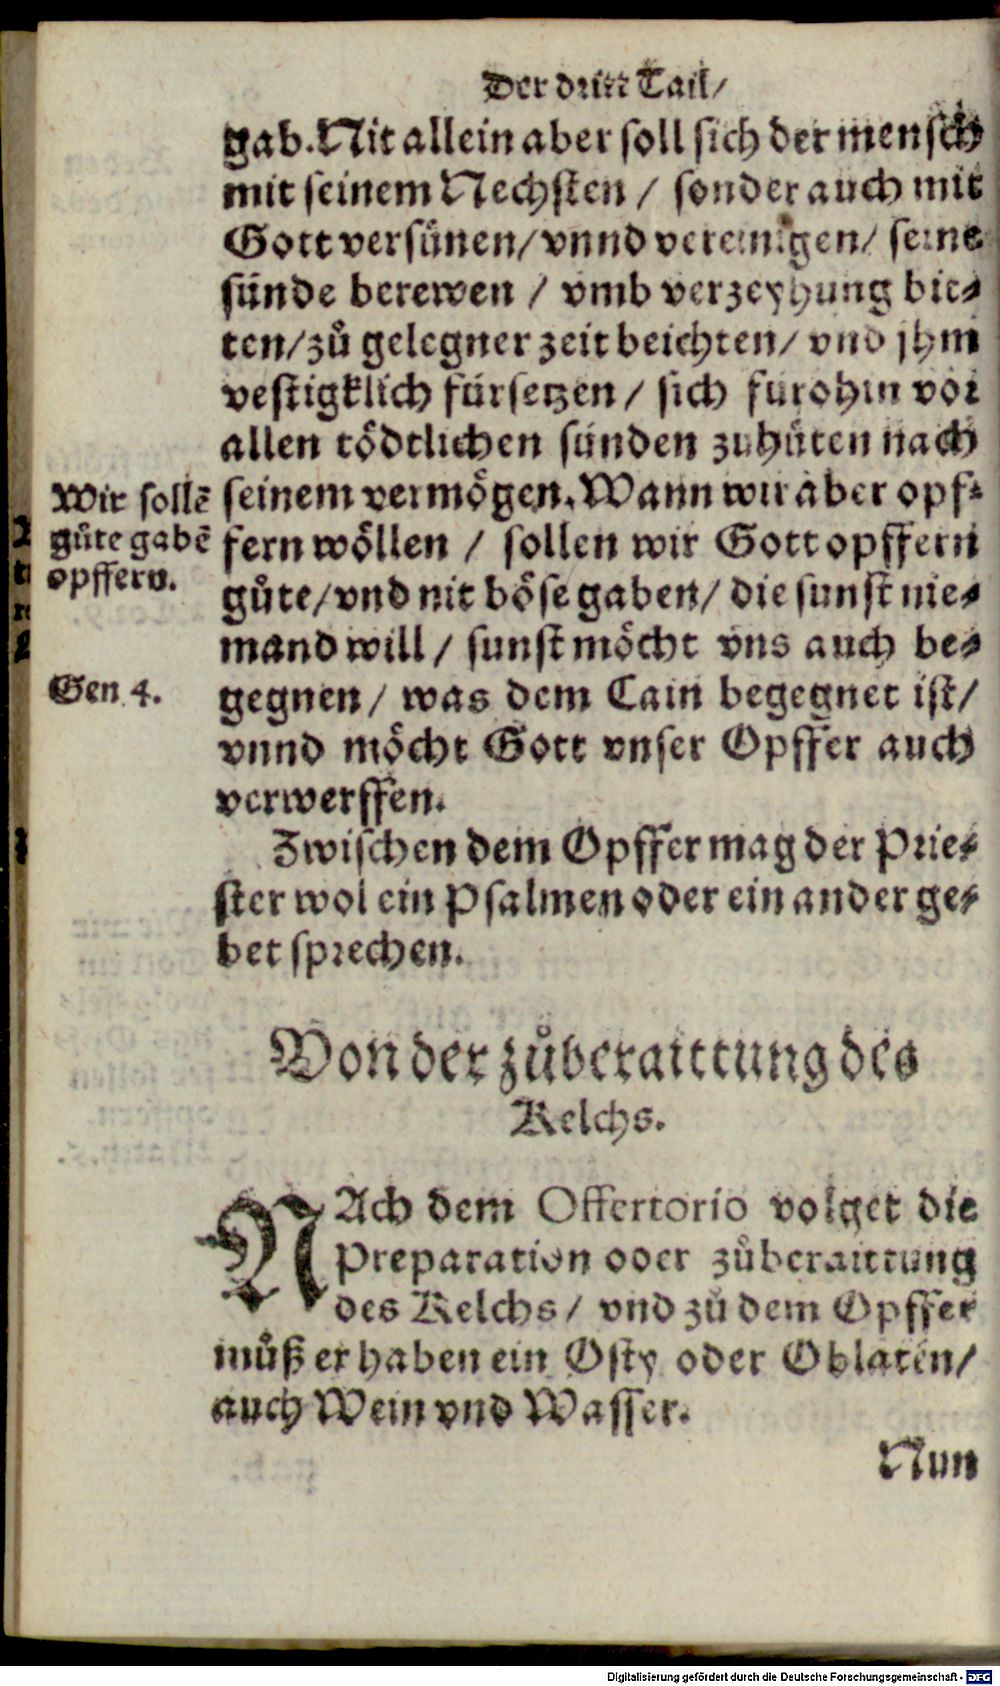 Der dritt Tail/
gab. Nit allein aber soll sich der mensch
mit seinem Nechsten / sonder auch mit
Gott versünen/ vnnd vereinigen/ seine
sünde berewen / vmb verzeyhung bit⸗
ten/ zů gelegner zeit beichten/ vnd jhm
vestigklich fürsetzen / sich fürohin vor
allen tödtlichen sünden zuhüten nach
seinem vermögen. Wann wir aber opf⸗
fern wöllen / sollen wir Gott opffern
gůte/ vnd nit böse gaben/ die sunst nie⸗
mand will / sunst möcht vns auch be⸗
gegnen / was dem Cain begegnet ist/
vnnd möcht Gott vnser Opffer auch
verwerffen.
Wir sollē
gůte gabē
opffern.
Gen 4.
Zwischen dem Opffer mag der Prie⸗
ster wol ein Psalmen oder ein ander ge⸗
bet sprechen.
Von der zůberaittung des
Kelchs.
NAch dem Offertorio volget die
Preparation oder zůberaittung
des Kelchs / vnd zů dem Opffer
můß er haben ein Osty oder Oblaten/
auch Wein vnd Wasser.
Nun
Digitalisierung gefördert durch die Deutsche Forschungsgemeinschaft - DFG